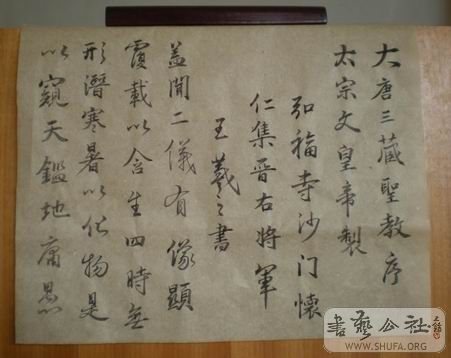 大唐三藏聖教序
太宗文皇帝製
弘福寺沙门懷
仁集晋右將軍
王羲之書
蓋聞二儀有像顯
覆載以含生四時無
形潛寒暑以化物是
以窺天鑑地庸愚
書藝公社
WWW.SHUFA.ORG